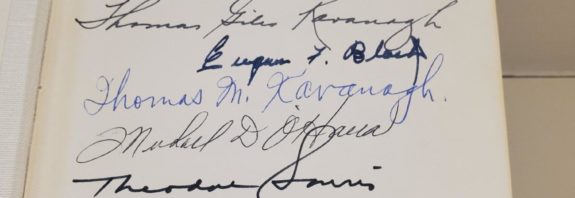 Thomas Giles Kavanagh
Eugene F. Black
Thomas M. Kavanagh.
Michael D O'Hara
Theodore Souris